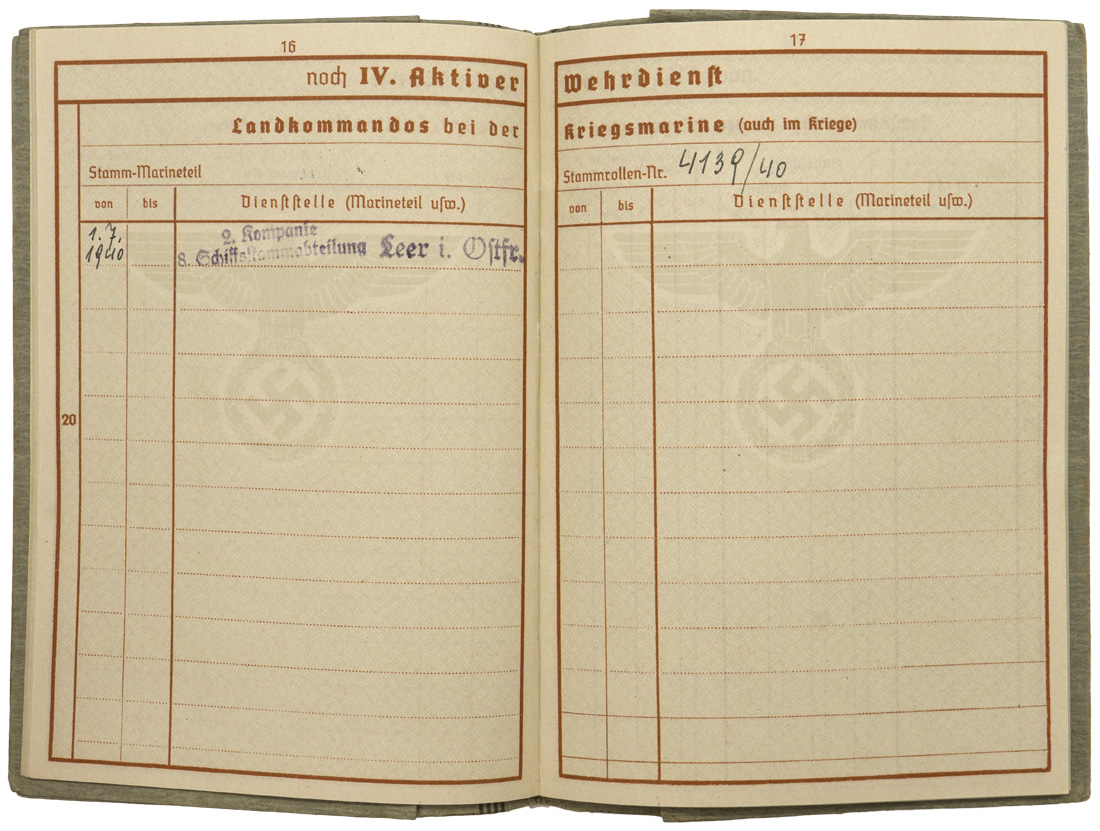 16
noch IV. Aktiver
Landkommandos bei der
Stamm-Marineteil
von bis Dienststelle (Marineteil usw.)
1.7.
1940
2. Kompanie
8. Schiffsstammabteilung Leer i. Ostfr.
20
17
Wehrdienst
Kriegsmarine (auch im Kriege)
Stammrollen-Nr. 4139/40
von bis Dienststelle (Marineteil usw.)